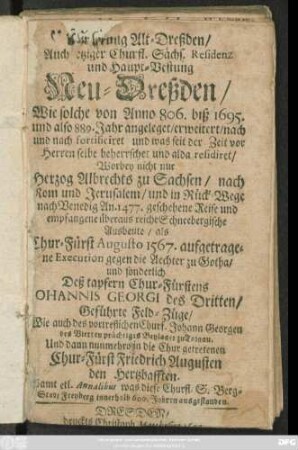 Alt-Dreßden/
Auch Churfl. Sächs. Residenz
und Haupt-Vestung
Neu-Dreßden/
Wie solche von Anno 806. biß 1695.
und also 889. Jahr angeleget/erweitert/nach
und nach fortificiret und was seit der Zeit vor
Herren selbe beherrschet und alda residiret/
Worbey nicht nur
Hertzog Albrechts zu Sachsen/ nach
Rom und Jerusalem/ und in Rück-Wege
nach Venedig An. 1477. geschehene Reise und
empfangene überaus reiche Schneebergische
Ausbeute/ als
Chur-Fürst Augusto 1567. aufgetrage-
ne Execution gegen die Aechter zu Gotha/
und sonderlich
Deß tapfern Chur-Fürstens
JOHANNIS GEORGI des Dritten/
Geführte Feld-Züge/
Wie auch des vortreflichen Churf. Johann Georgen
des Vierten prächtiges Beylager zu
Und dann nunmehro in die Chur getretenen
Chur-Fürst Friedrich Augusten
den Hertzhafften.
Samt etl. Annalibus was diese Churfl. S. Berg-
Stadt Freyberg innerhalb Jahren ausgestanden.
DRESDEN/
druckts Christoph